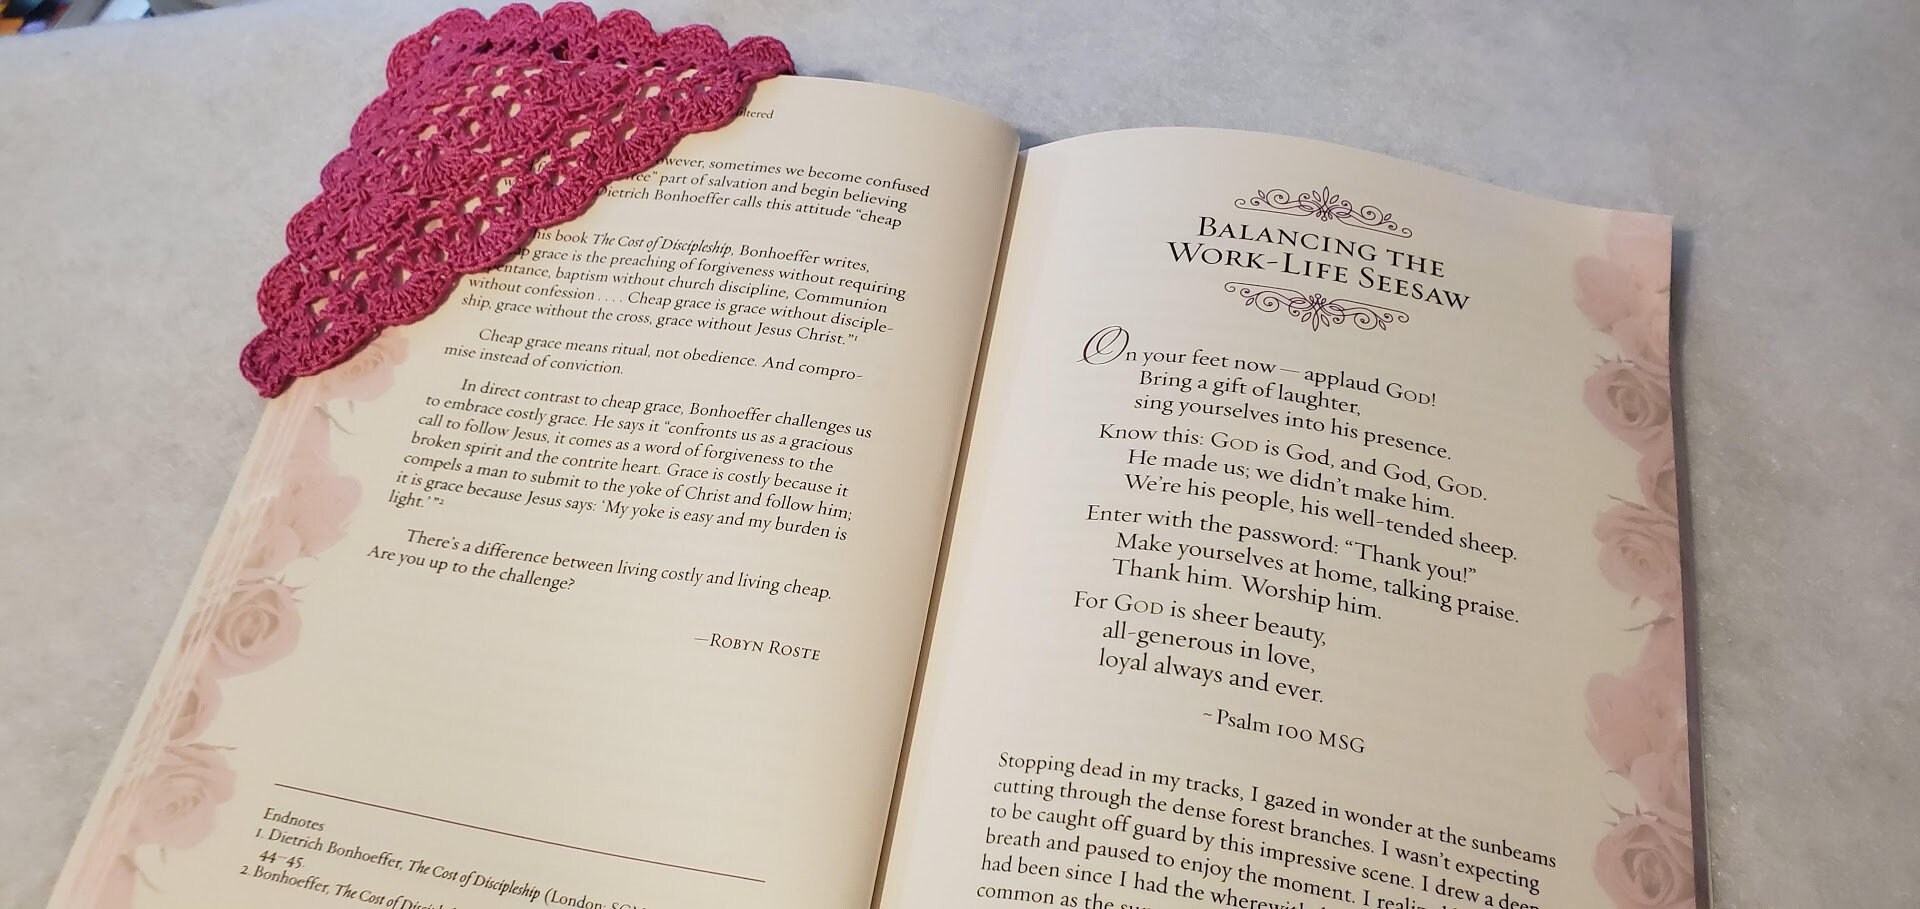 owever, sometimes we become confused
part of salvation and begin believing
Dietrich Bonhoeffer calls this attitude “cheap
his book The Cost of Discipleship, Bonhoeffer writes,
grace is the preaching of forgiveness without requiring
repentance, baptism without church discipline, Communion
without confession . . . . Cheap grace is grace without disciple-
ship, grace without the cross, grace without Jesus Christ.”1
Cheap grace means ritual, not obedience. And compro-
mise instead of conviction.
In direct contrast to cheap grace, Bonhoeffer challenges us
to embrace costly grace. He says it “confronts us as a gracious
call to follow Jesus, it comes as a word of forgiveness to the
broken spirit and the contrite heart. Grace is costly because it
compels a man to submit to the yoke of Christ and follow him;
it is grace because Jesus says: ‘My yoke is easy and my burden is
light.’”2
There’s a difference between living costly and living cheap.
Are you up to the challenge?
—Robyn Roste
Endnotes
1. Dietrich Bonhoeffer, The Cost of Discipleship (London:
44–45.
2. Bonhoeffer, The Cost of
Balancing the
Work-Life Seesaw
On your feet now — applaud God!
Bring a gift of laughter,
sing yourselves into his presence.
Know this: God is God, and God, God.
He made us; we didn’t make him.
We’re his people, his well-tended sheep.
Enter with the password: “Thank you!”
Make yourselves at home, talking praise.
Thank him. Worship him.
For God is sheer beauty,
all-generous in love,
loyal always and ever.
~ Psalm 100 MSG
Stopping dead in my tracks, I gazed in wonder at the sunbeams
cutting through the dense forest branches. I wasn’t expecting
to be caught off guard by this impressive scene. I drew a deep
breath and paused to enjoy the moment. I
had been since I had the
common as the